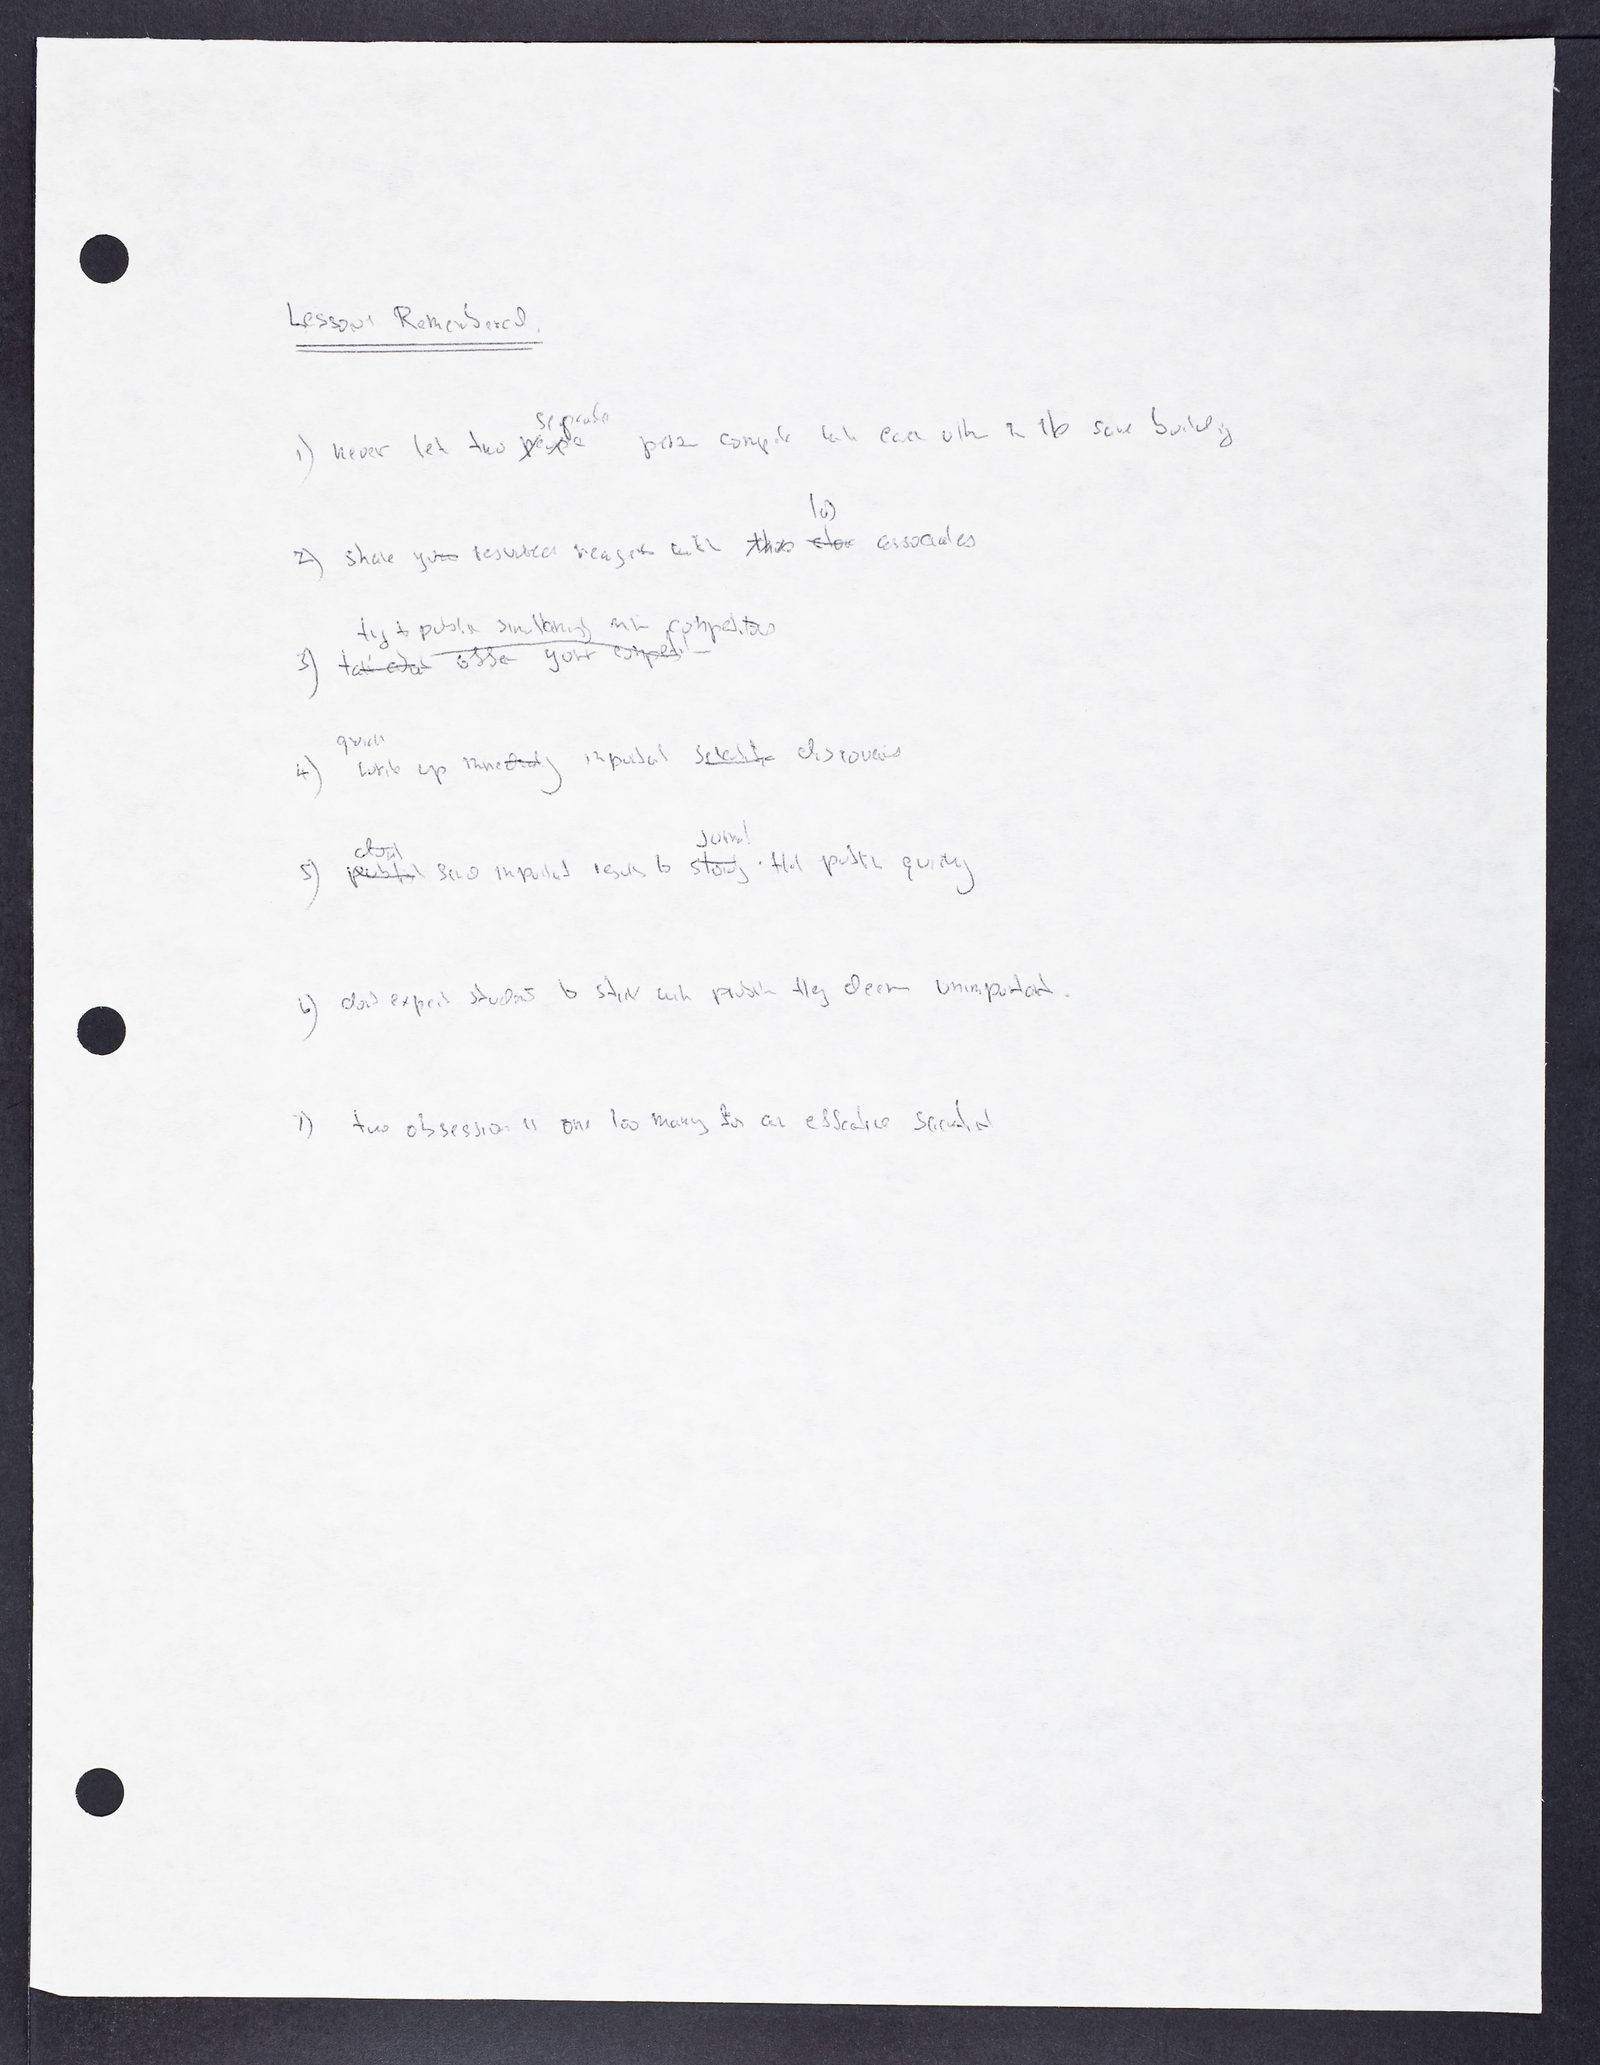 Lessons Remembered.
separate
1) never let two people compete with each other in the same building
2) share your resources reagents with associates
try to publish simultaneously with competitors
3) offer your competitor
quickly
4) write up immediately important scientific discoveries
journal
5) send important results to that publish quickly
6) dont expect students to stick with problem they deem unimportant.
7) two obsessions is one too many for an effective scientist